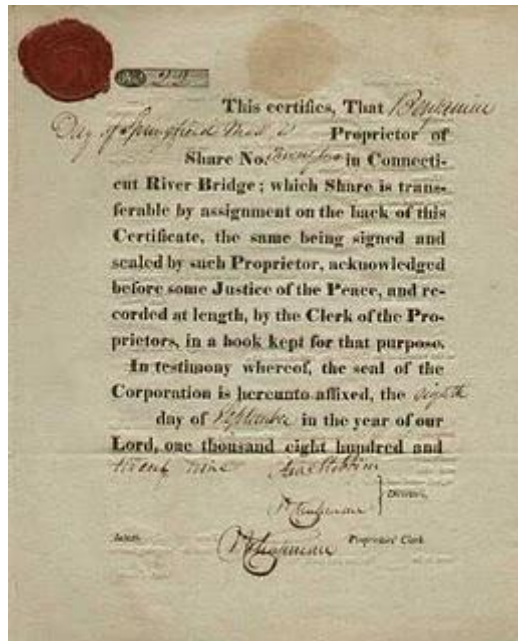 No. 22
This certifies, That Benjamin
Day of Springfield Proprietor of
Share No. in Connecti-
cut River Bridge; which Share is trans-
ferable by assignment on the back of this
Certificate, the same being signed and
sealed by such Proprietor, acknowledged
before some Justice of the Peace, and re-
corded at length, by the Clerk of the Pro-
prietors, in a book kept for that purpose.
In testimony whereof, the seal of the
Corporation is hereunto affixed, the eighth
day of September in the year of our
Lord, one thousand eight hundred and
twenty nine
Directors,
Attest. Proprietors' Clerk